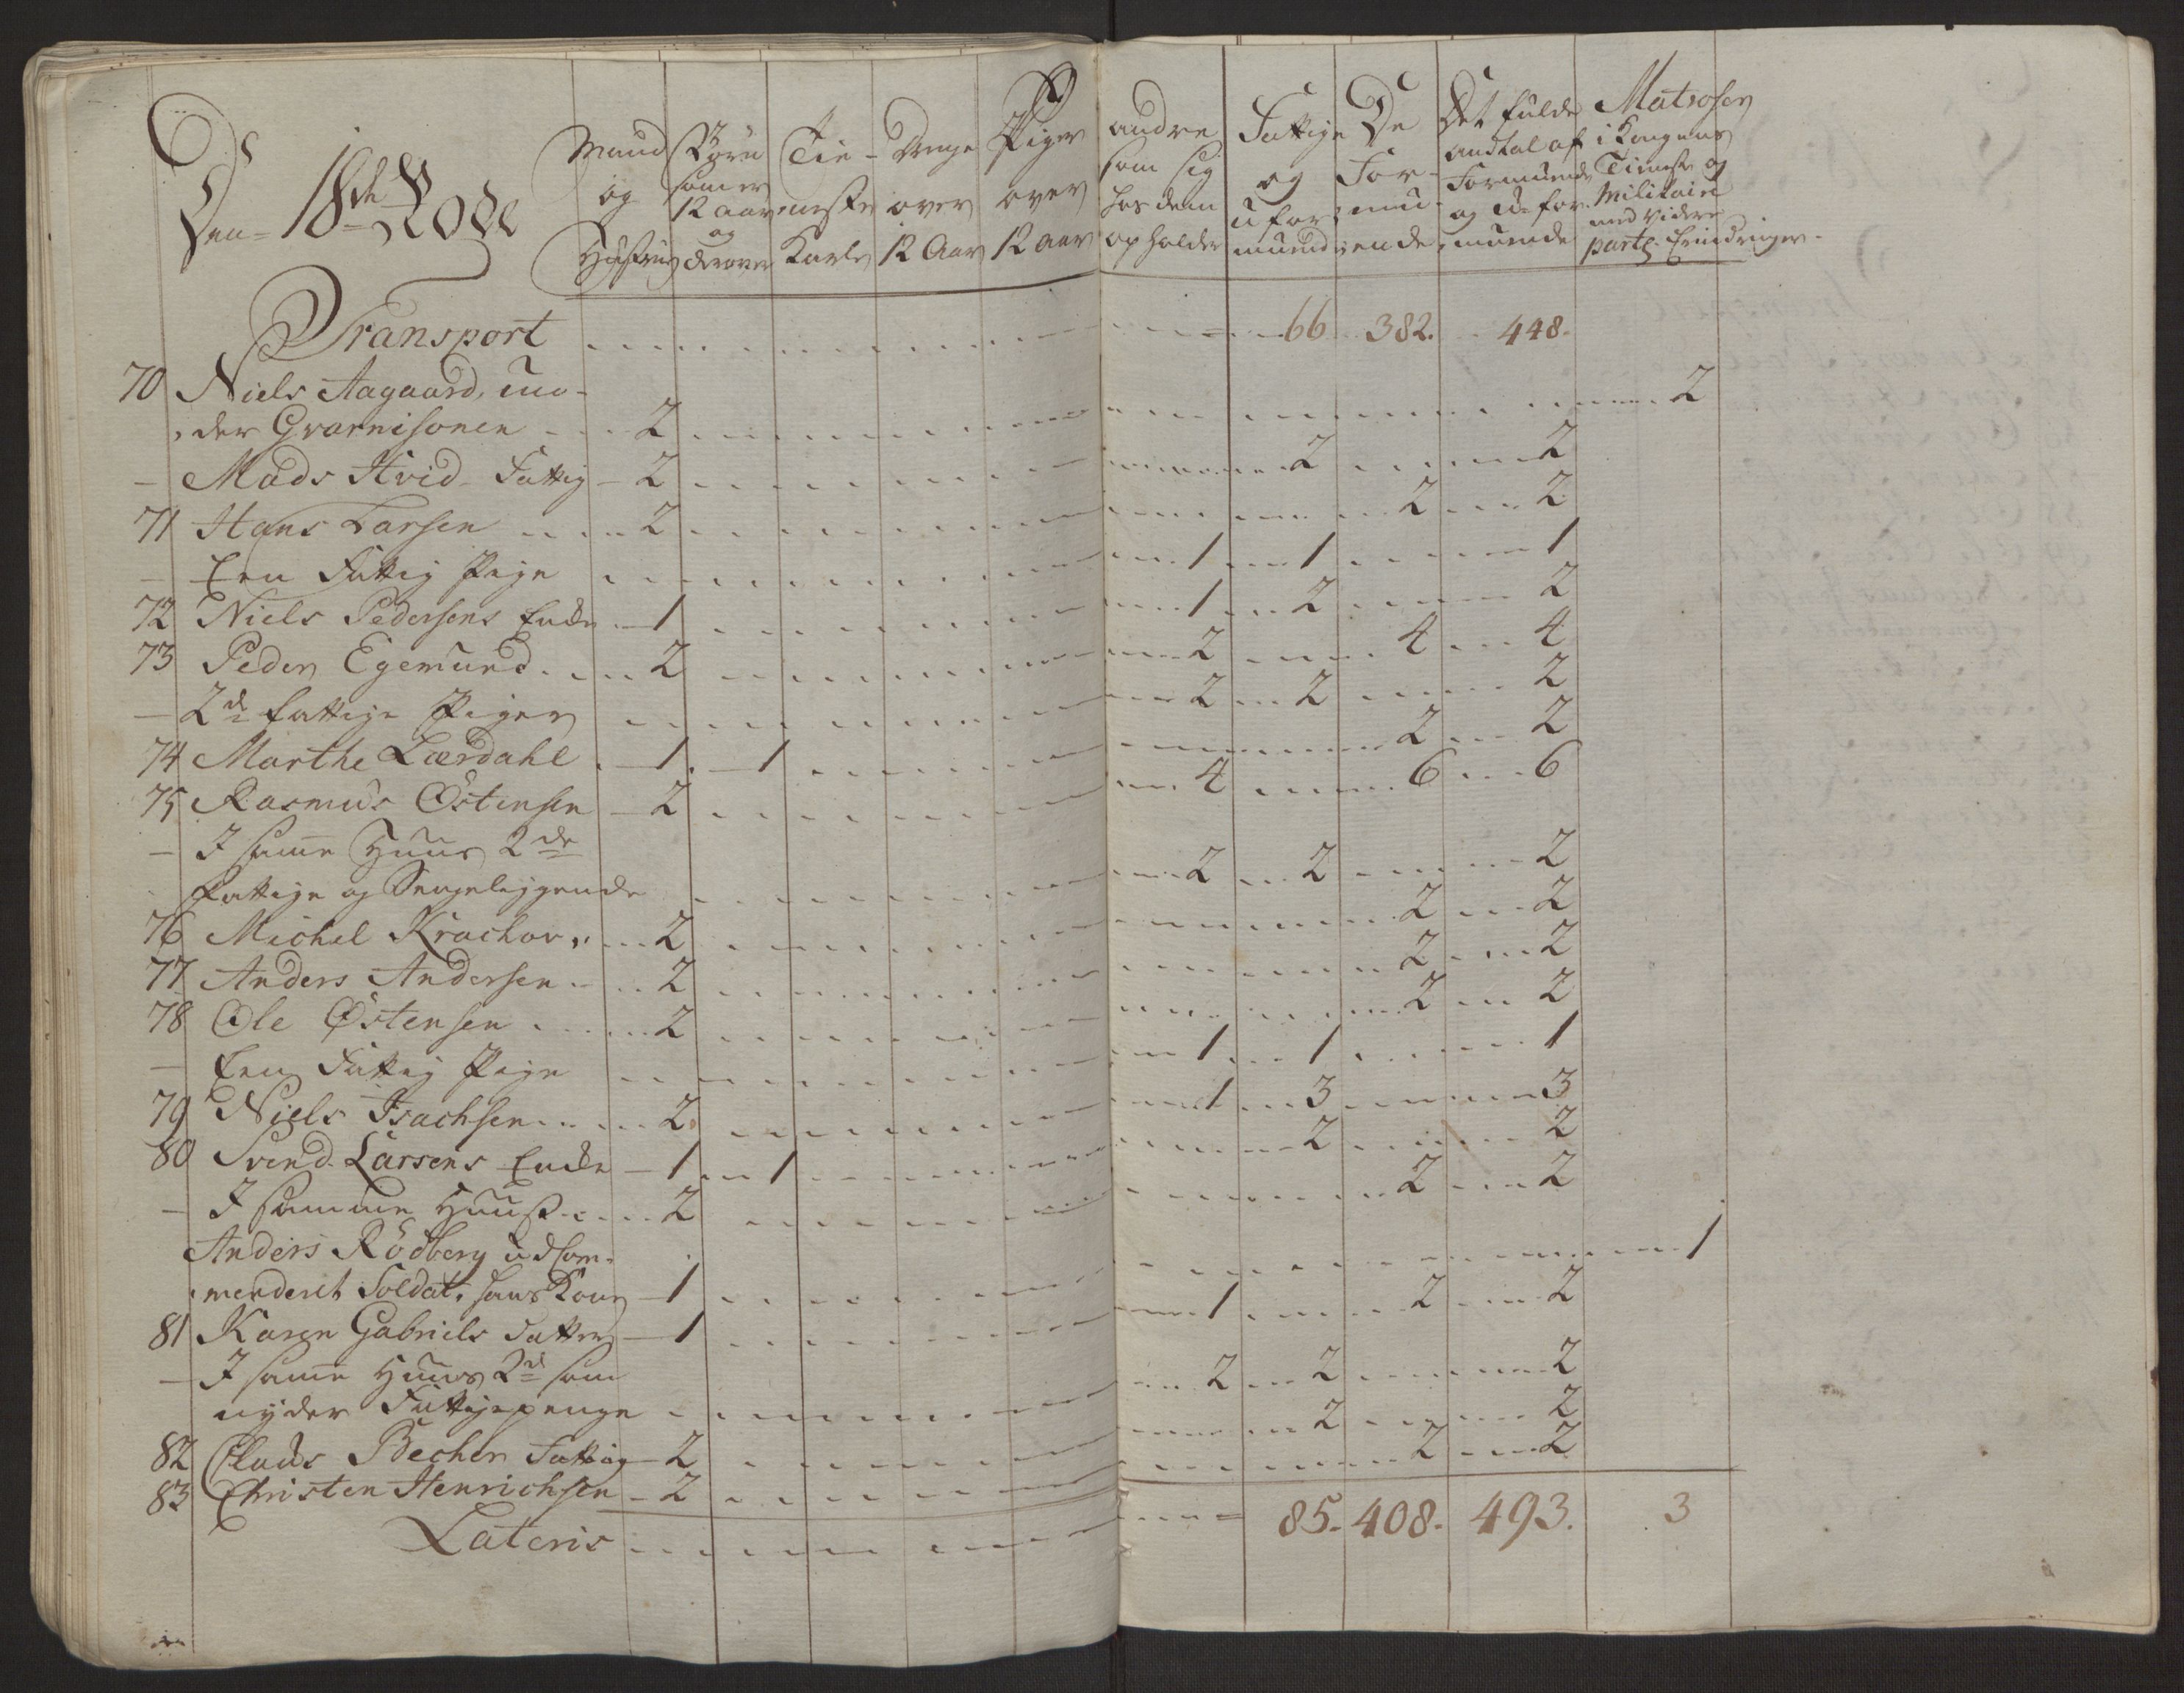 Den 18de Rode
Mand og Hustrue | Børn som er 12 Aar og derover | Tieneste Karle | Drenge over 12 Aar | Piger over 12 Aar | andre som sig hos dem opholder | Fattige og uformuende | De Formuende | Det fulde Andtal af Formuende og Uformuende | Matroser i Kongens Tieneste og Militaire med videre parts Erindringer
Transport - - - 66 382. 448.
70 Niels Aagaard, un-
der Gvarnisonen - 2 - - - 2
- Mads Hvid - Fattig - 2 - - - 2 - 2
71 Hans Larsen - 2 - - - 2 - 2
- Een Fattig Pige - - - 1 - 1 - 1
72 Niels Pedersens Encke - 1 - - - 1 - 2 - 2
73 Peder Egemund - 2 - - - 2 - 4 - 4
- 2de fattige Piger - - - 2 - 2 - 2
74 Marthe Lærdahl - 1 - 1 - - - 2 - 2
75 Rasmus Østensen - 2 - - - 4 - 6 - 6
- I samme Huus 2de
Fattige og Sengeliggende - - - 2 - 2 - 2
76 Michel Krachov - 2 - - - 2 - 2
77 Anders Andersen - 2 - - - 2 - 2
78 Ole Østensen - 2 - - - 2 - 2
- Een Fattig Pige - - - 1 - 1 - 1
79 Niels Isachsen - 2 - - - 1 - 3 - 3
80 Svend Larsens Encke - 1 - 1 - - - 2 - 2
- I samme Huus - 2 - - - 2 - 2
Anders Rödberg udcom-
menderet Soldat, hans Kone - 1 - - - 1
81 Karen Gabriels Datter - 1 - - - 1 - 2 - 2
- I samme Huus 2de som
nyder Fattigepenge - - - 2 - 2 - 2
82 Claus Becher Fattig - 2 - - - 2 - 2
83 Christen Henrichsen - 2 - - - 2 - 2
Lateris - - - 85. 408. 493. 3